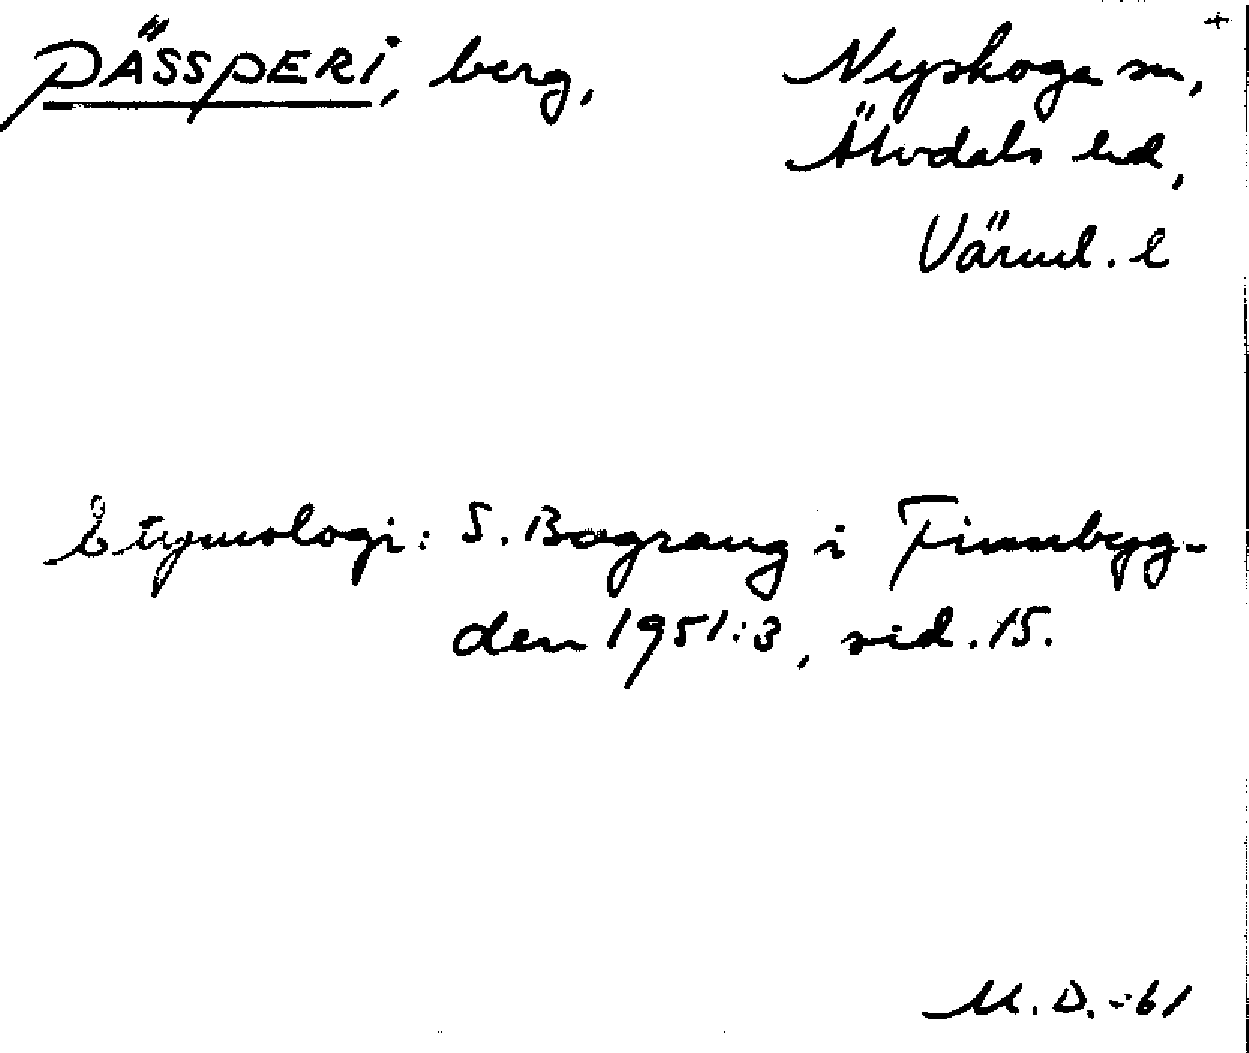 PÄSSPERI, berg, Nyskoga sn, +
Älvdals hd,
Värml. l
Etymologi: S. Bograng i Finnbyg-
den 1951:3, sid. 15.
M. D. -61